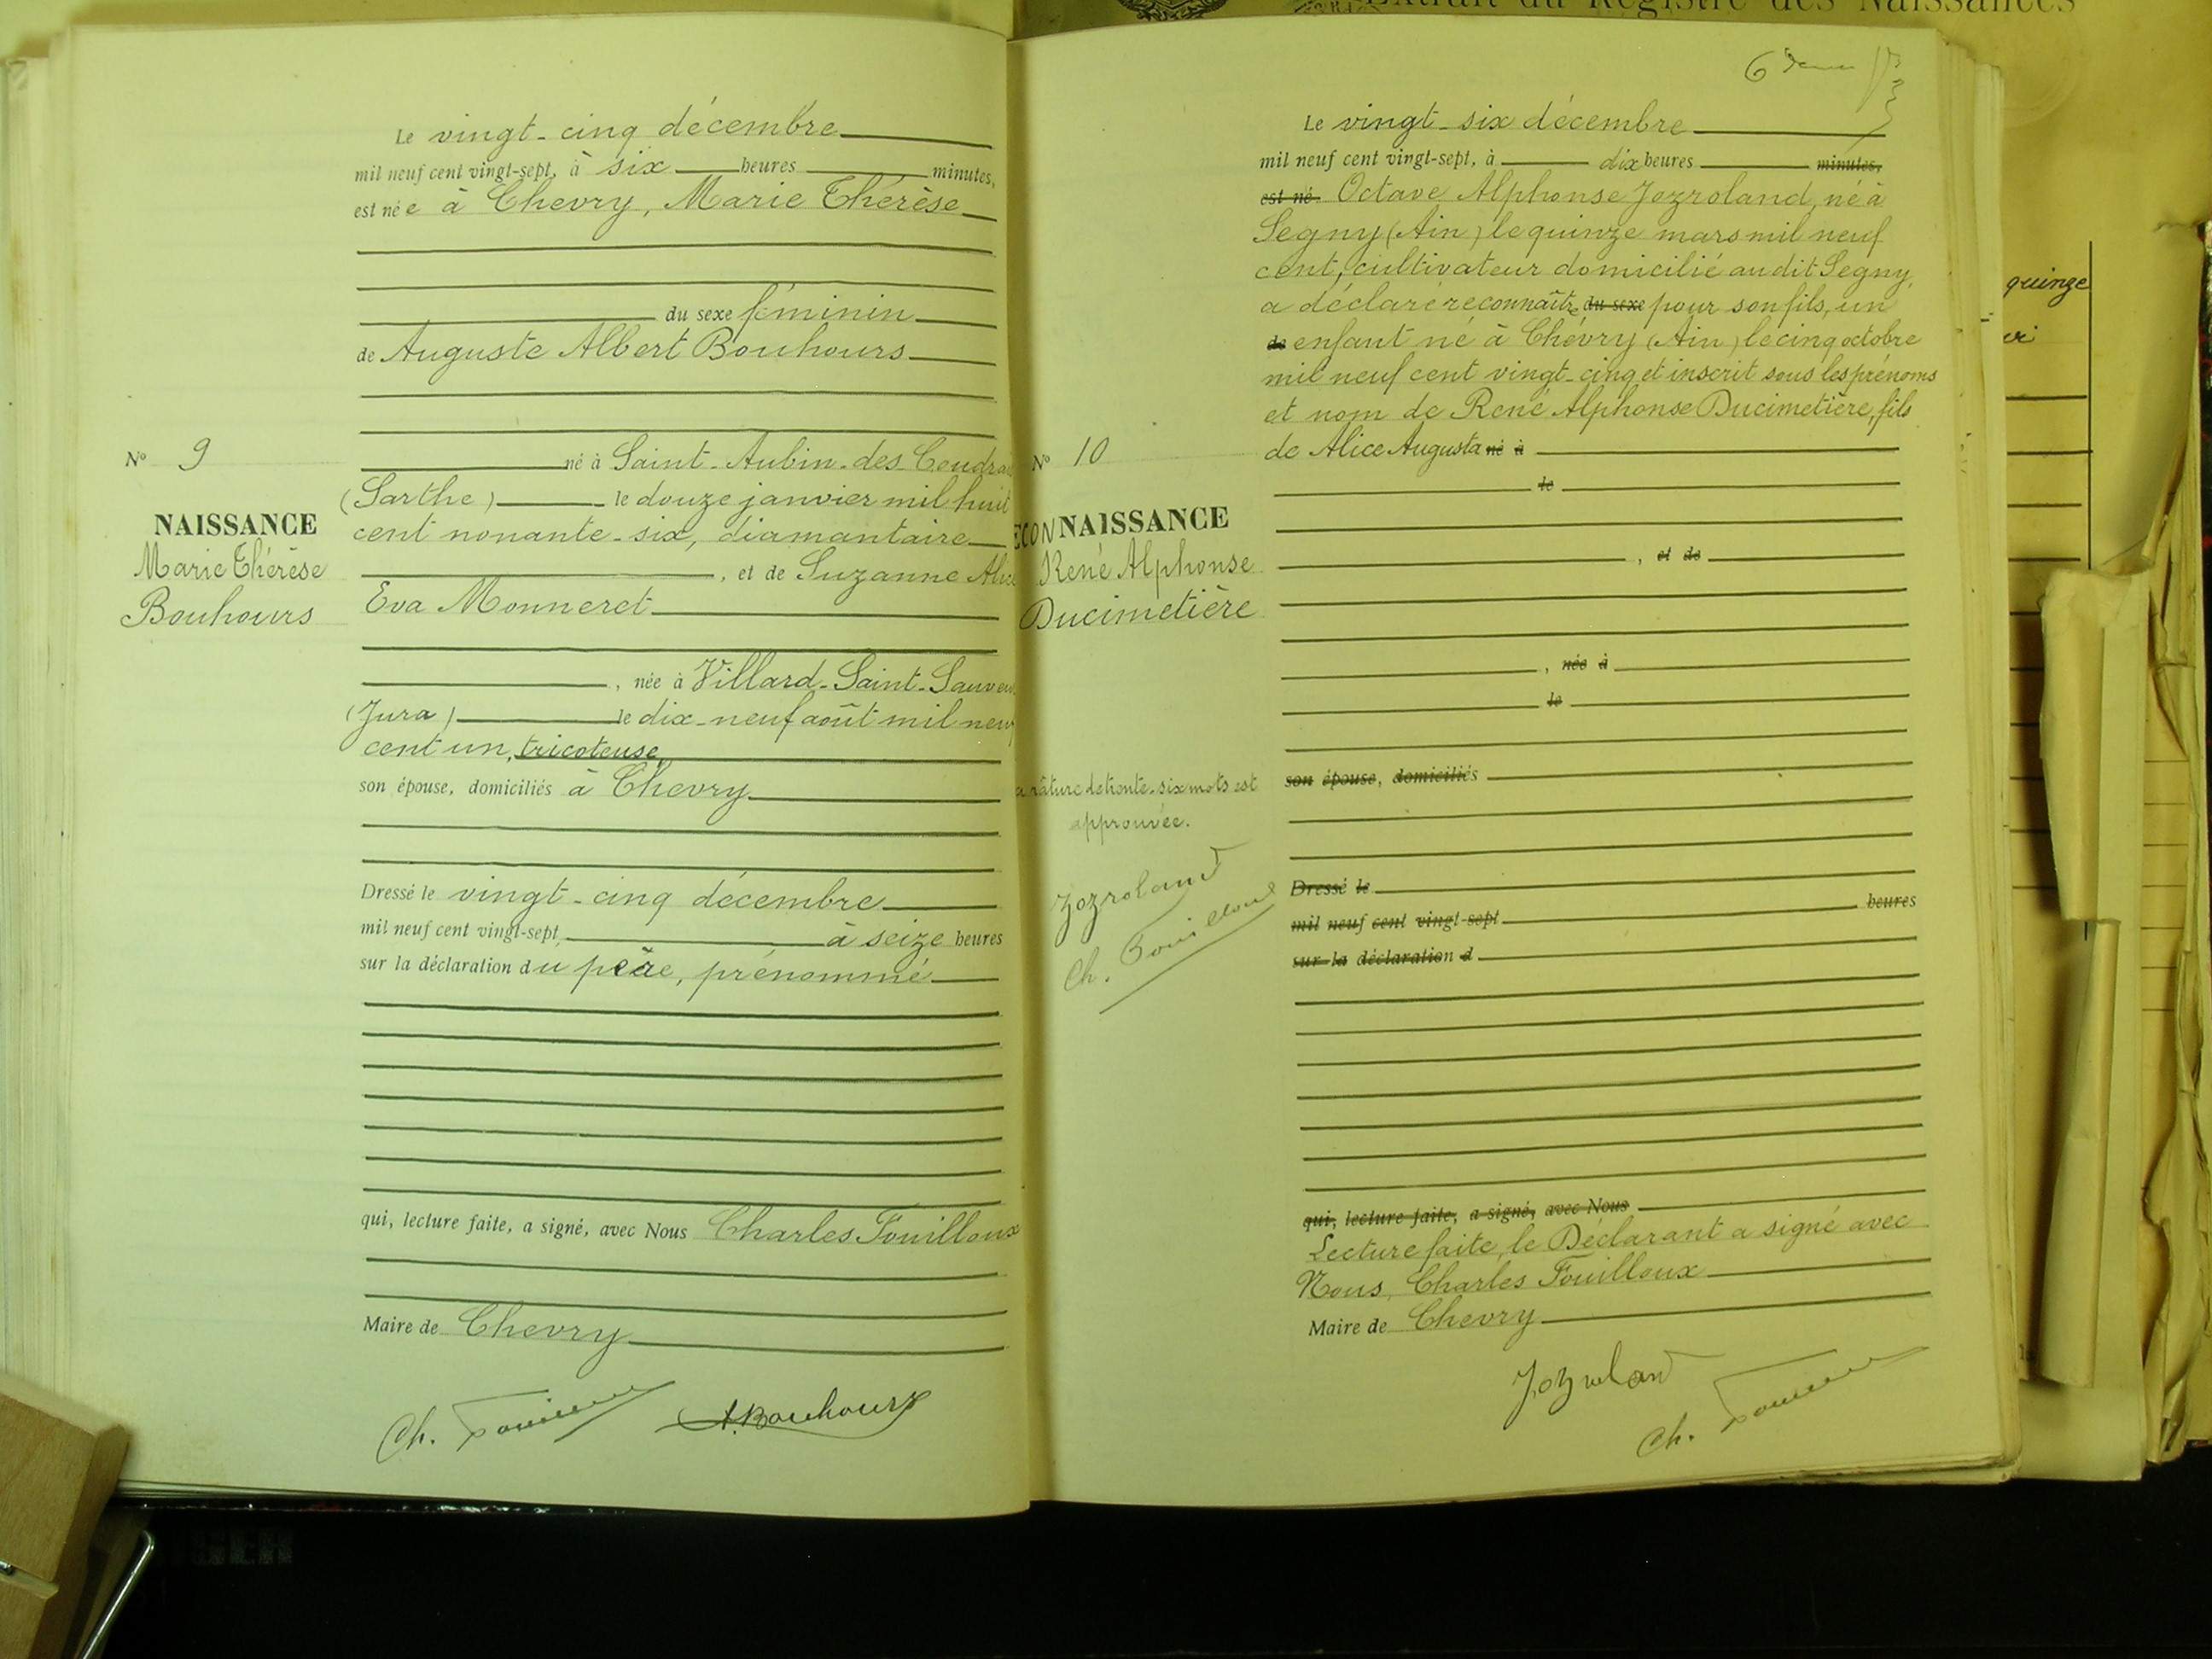 Extrait du Registre des Naissances
Le vingt-cinq décembre
mil neuf cent vingt-sept, à six heures minutes,
est née à Chevry, Marie Thérèse
du sexe féminin
de Auguste Albert Bouhours
N° 9
né à Saint-Aubin-des-Coudra
(Sarthe) le douze janvier mil huit
NAISSANCE
cent nonante-six, diamantaire
Marie Thérèse
, et de Suzanne Alice
Bouhours
Eva Monneret
, née à Villard-Saint-Sauveu
(Jura) le dix-neuf août mil neuf
cent un, tricoteuse
son épouse, domiciliés à Chevry
Dressé le vingt-cinq décembre
mil neuf cent vingt-sept, à seize heures
sur la déclaration du père, prénommé
qui, lecture faite, a signé, avec Nous Charles Fouilloux
Maire de Chevry
Ch. Fouilloux
A. Bouhours
6
Le vingt-six décembre
mil neuf cent vingt-sept, à dix heures minutes,
est né. Octave Alphonse Jozroland, né à
Segny (Ain) le quinze mars mil neuf
cent, cultivateur domicilié audit Segny,
a déclaré reconnaître, du sexe pour son fils, un
de enfant né à Chevry (Ain) le cinq octobre
mil neuf cent vingt-cinq et inscrit sous les prénoms
et nom de René Alphonse Ducimetière, fils
N° 10
de Alice Augusta né à
le
ECONNAISSANCE
René Alphonse
, et de
Ducimetière
, née à
le
son épouse, domiciliés
a râture de trente-six mots est
approuvée.
Jozroland
Ch. Fouilloux
Dressé le
mil neuf cent vingt-sept heures
sur la déclaration d
qui, lecture faite, a signé, avec Nous
Lecture faite, le Déclarant a signé avec
Nous, Charles Fouilloux
Maire de Chevry
Jozroland
Ch. Fouilloux
quinze